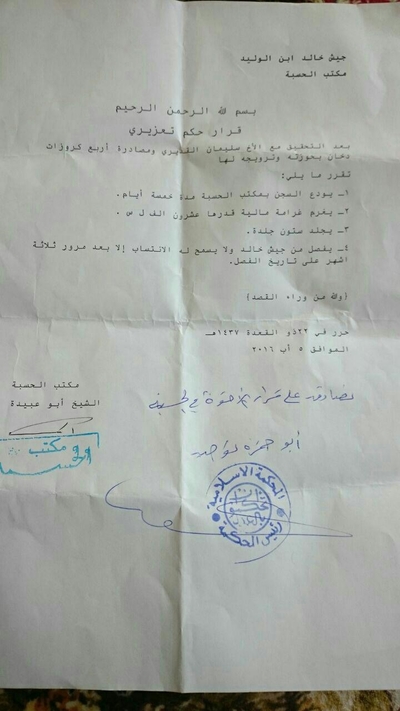 جيش خالد ابن الوليد
مكتب الحسبة
بسم لله الرحمن الرحيم
قرار حكم تعزيري
بعد التحقيق مع الأخ سليمان القديري ومصادرة أربع كروزات
دخان بحوزته وترويجه لها
تقرر ما يلي:
١- يودع السجن بمكتب الحسبة مدة خمسة أيام.
٢- يغرم غرامة مالية قدرها عشرون الف ل س .
٣- يجلد ستون جلدة.
٤- يفصل من جيش خالد ولا يسمح له الانتساب إلا بعد مرور ثلاثة
اشهر على تاريخ الفصل.
(ولله من وراء القصد)
حرر في ٢٢ذو القعدة ١٤٣٧هـ
الموافق ٥ أب ٢٠١٦
مكتب الحسبة
الشيخ أبو عبيدة
مكتب
نصادق على قرار الأخوة في الحسبة
أبو حمزة
المحكمة الاسلامية
رئيس المحكمة